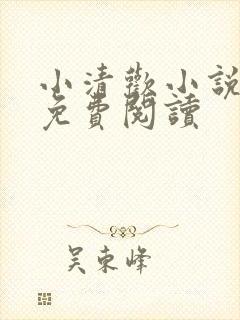 小清歡小說
免費閱讀
吴東峰